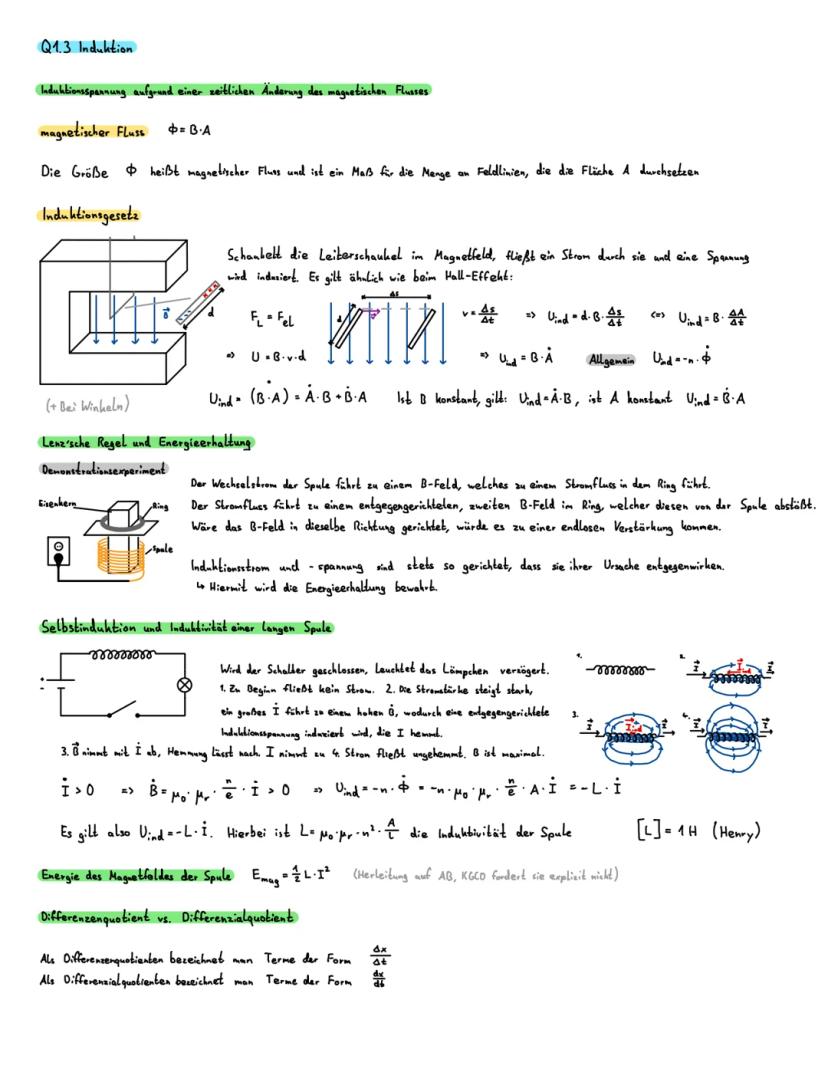 Q1.3 Induktion
Induktionsspannung aufgrund einer zeitlichen Änderung des magnetischen Flusses
magnetischer Fluss Φ = B·A
Die Größe Φ heißt magnetischer Fluss und ist ein Maß für die Menge an Feldlinien, die die Fläche A durchsetzen
Induktionsgesetz
Schaukelt die Leiterschaukel im Magnetfeld, fließt ein Strom durch sie und eine Spannung
wird induziert. Es gilt ähnlich wie beim Hall-Effekt:
B d
F_L = F_el
d Δs
v = Δs/Δt => U_ind = d·B·Δs/Δt <=> U_ind = B·ΔA/Δt
=> U = B·v·d
=> U_ind = B·Ȧ Allgemein U_ind = -n·Φ̇
(+ Bei Winkeln)
U_ind = (B·A)˙ = Ȧ·B + Ḃ·A Ist B konstant, gilt: U_ind = Ȧ·B, ist A konstant U_ind = Ḃ·A
Lenz'sche Regel und Energieerhaltung
Demonstrationsexperiment
Eisenkern
Ring
Spule
Der Wechselstrom der Spule führt zu einem B-Feld, welches zu einem Stromfluss in dem Ring führt.
Der Stromfluss führt zu einem entgegengerichteten, zweiten B-Feld im Ring, welcher diesen von der Spule abstößt.
Wäre das B-Feld in dieselbe Richtung gerichtet, würde es zu einer endlosen Verstärkung kommen.
Induktionsstrom und -spannung sind stets so gerichtet, dass sie ihrer Ursache entgegenwirken.
↳ Hiermit wird die Energieerhaltung bewahrt.
Selbstinduktion und Induktivität einer langen Spule
Wird der Schalter geschlossen, leuchtet das Lämpchen verzögert.
1. Zu Beginn fließt kein Strom. 2. Die Stromstärke steigt stark,
ein großes İ führt zu einem hohen Ḃ, wodurch eine entgegengerichtete
Induktionsspannung induziert wird, die I hemmt.
3. B nimmt mit İ ab, Hemmung lässt nach. I nimmt zu 4. Strom fließt ungehemmt. B ist maximal.
1.
2.
3.
4.
İ > 0 => Ḃ = μ₀·μᵣ·n/l·İ > 0 => U_ind = -n·Φ̇ = -n·μ₀·μᵣ·n/l·A·İ = -L·İ
Es gilt also U_ind = -L·İ. Hierbei ist L = μ₀·μᵣ·n²·A/l die Induktivität der Spule [L] = 1H (Henry)
Energie des Magnetfeldes der Spule E_mag = 1/2 L·I² (Herleitung auf AB, KGCO fordert sie explizit nicht)
Differenzenquotient vs. Differenzialquotient
Als Differenzenquotienten bezeichnet man Terme der Form Δx/Δt
Als Differenzialquotienten bezeichnet man Terme der Form dx/dt